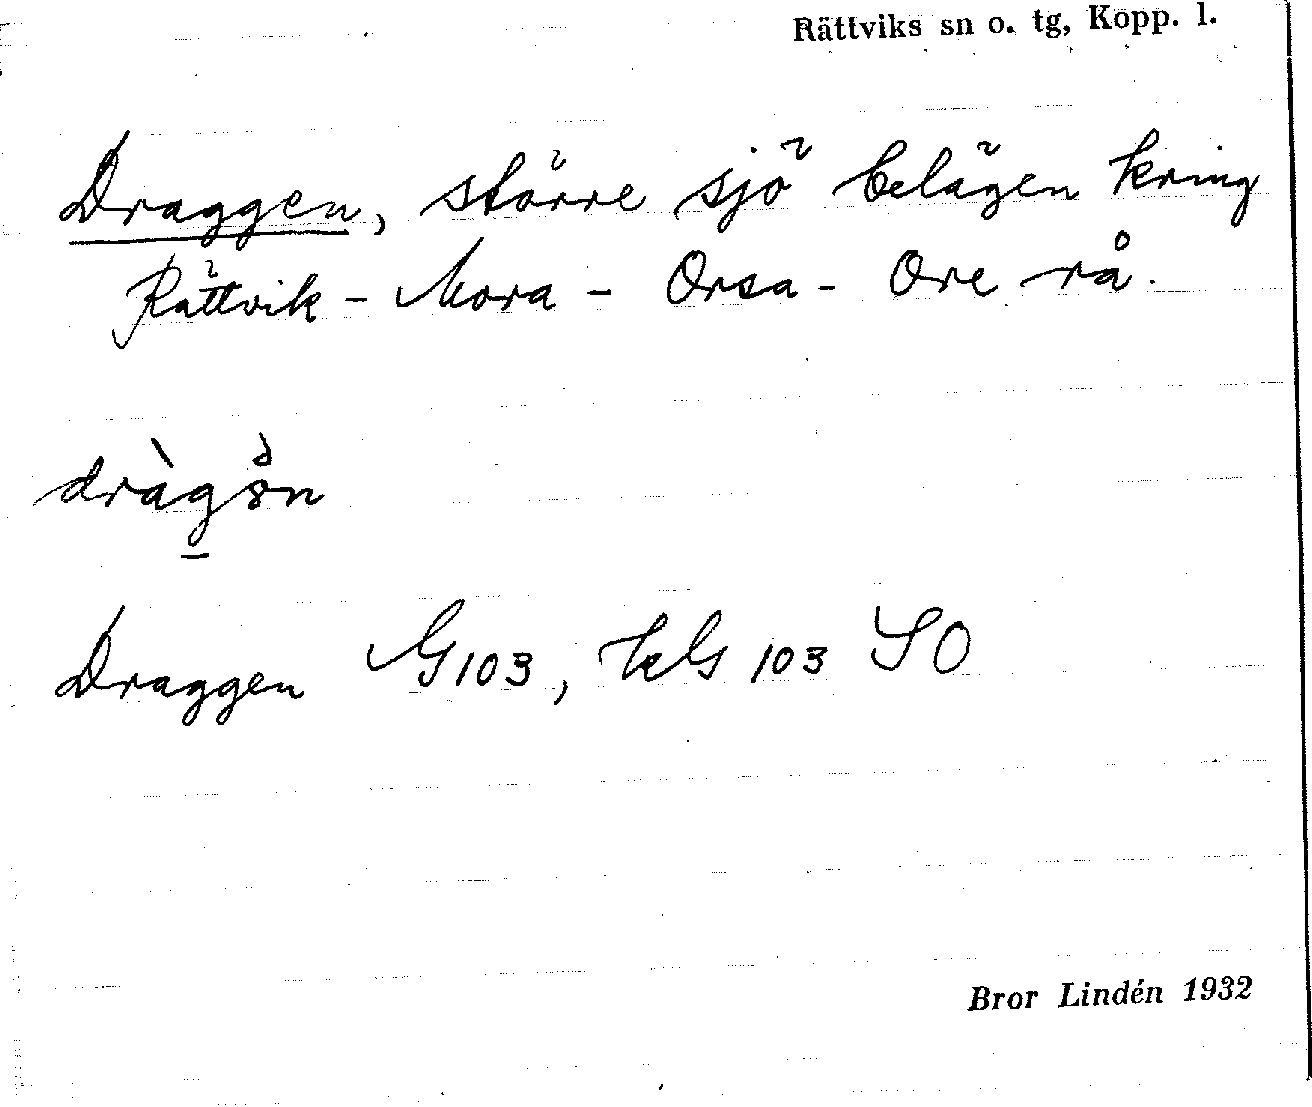 Rättviks sn o. tg, Kopp. l.
Draggen, större sjö belägen kring
Rättvik - Mora - Orsa - Ore rå.
Draggen G 103, kG 103 SO
Bror Lindén 1932